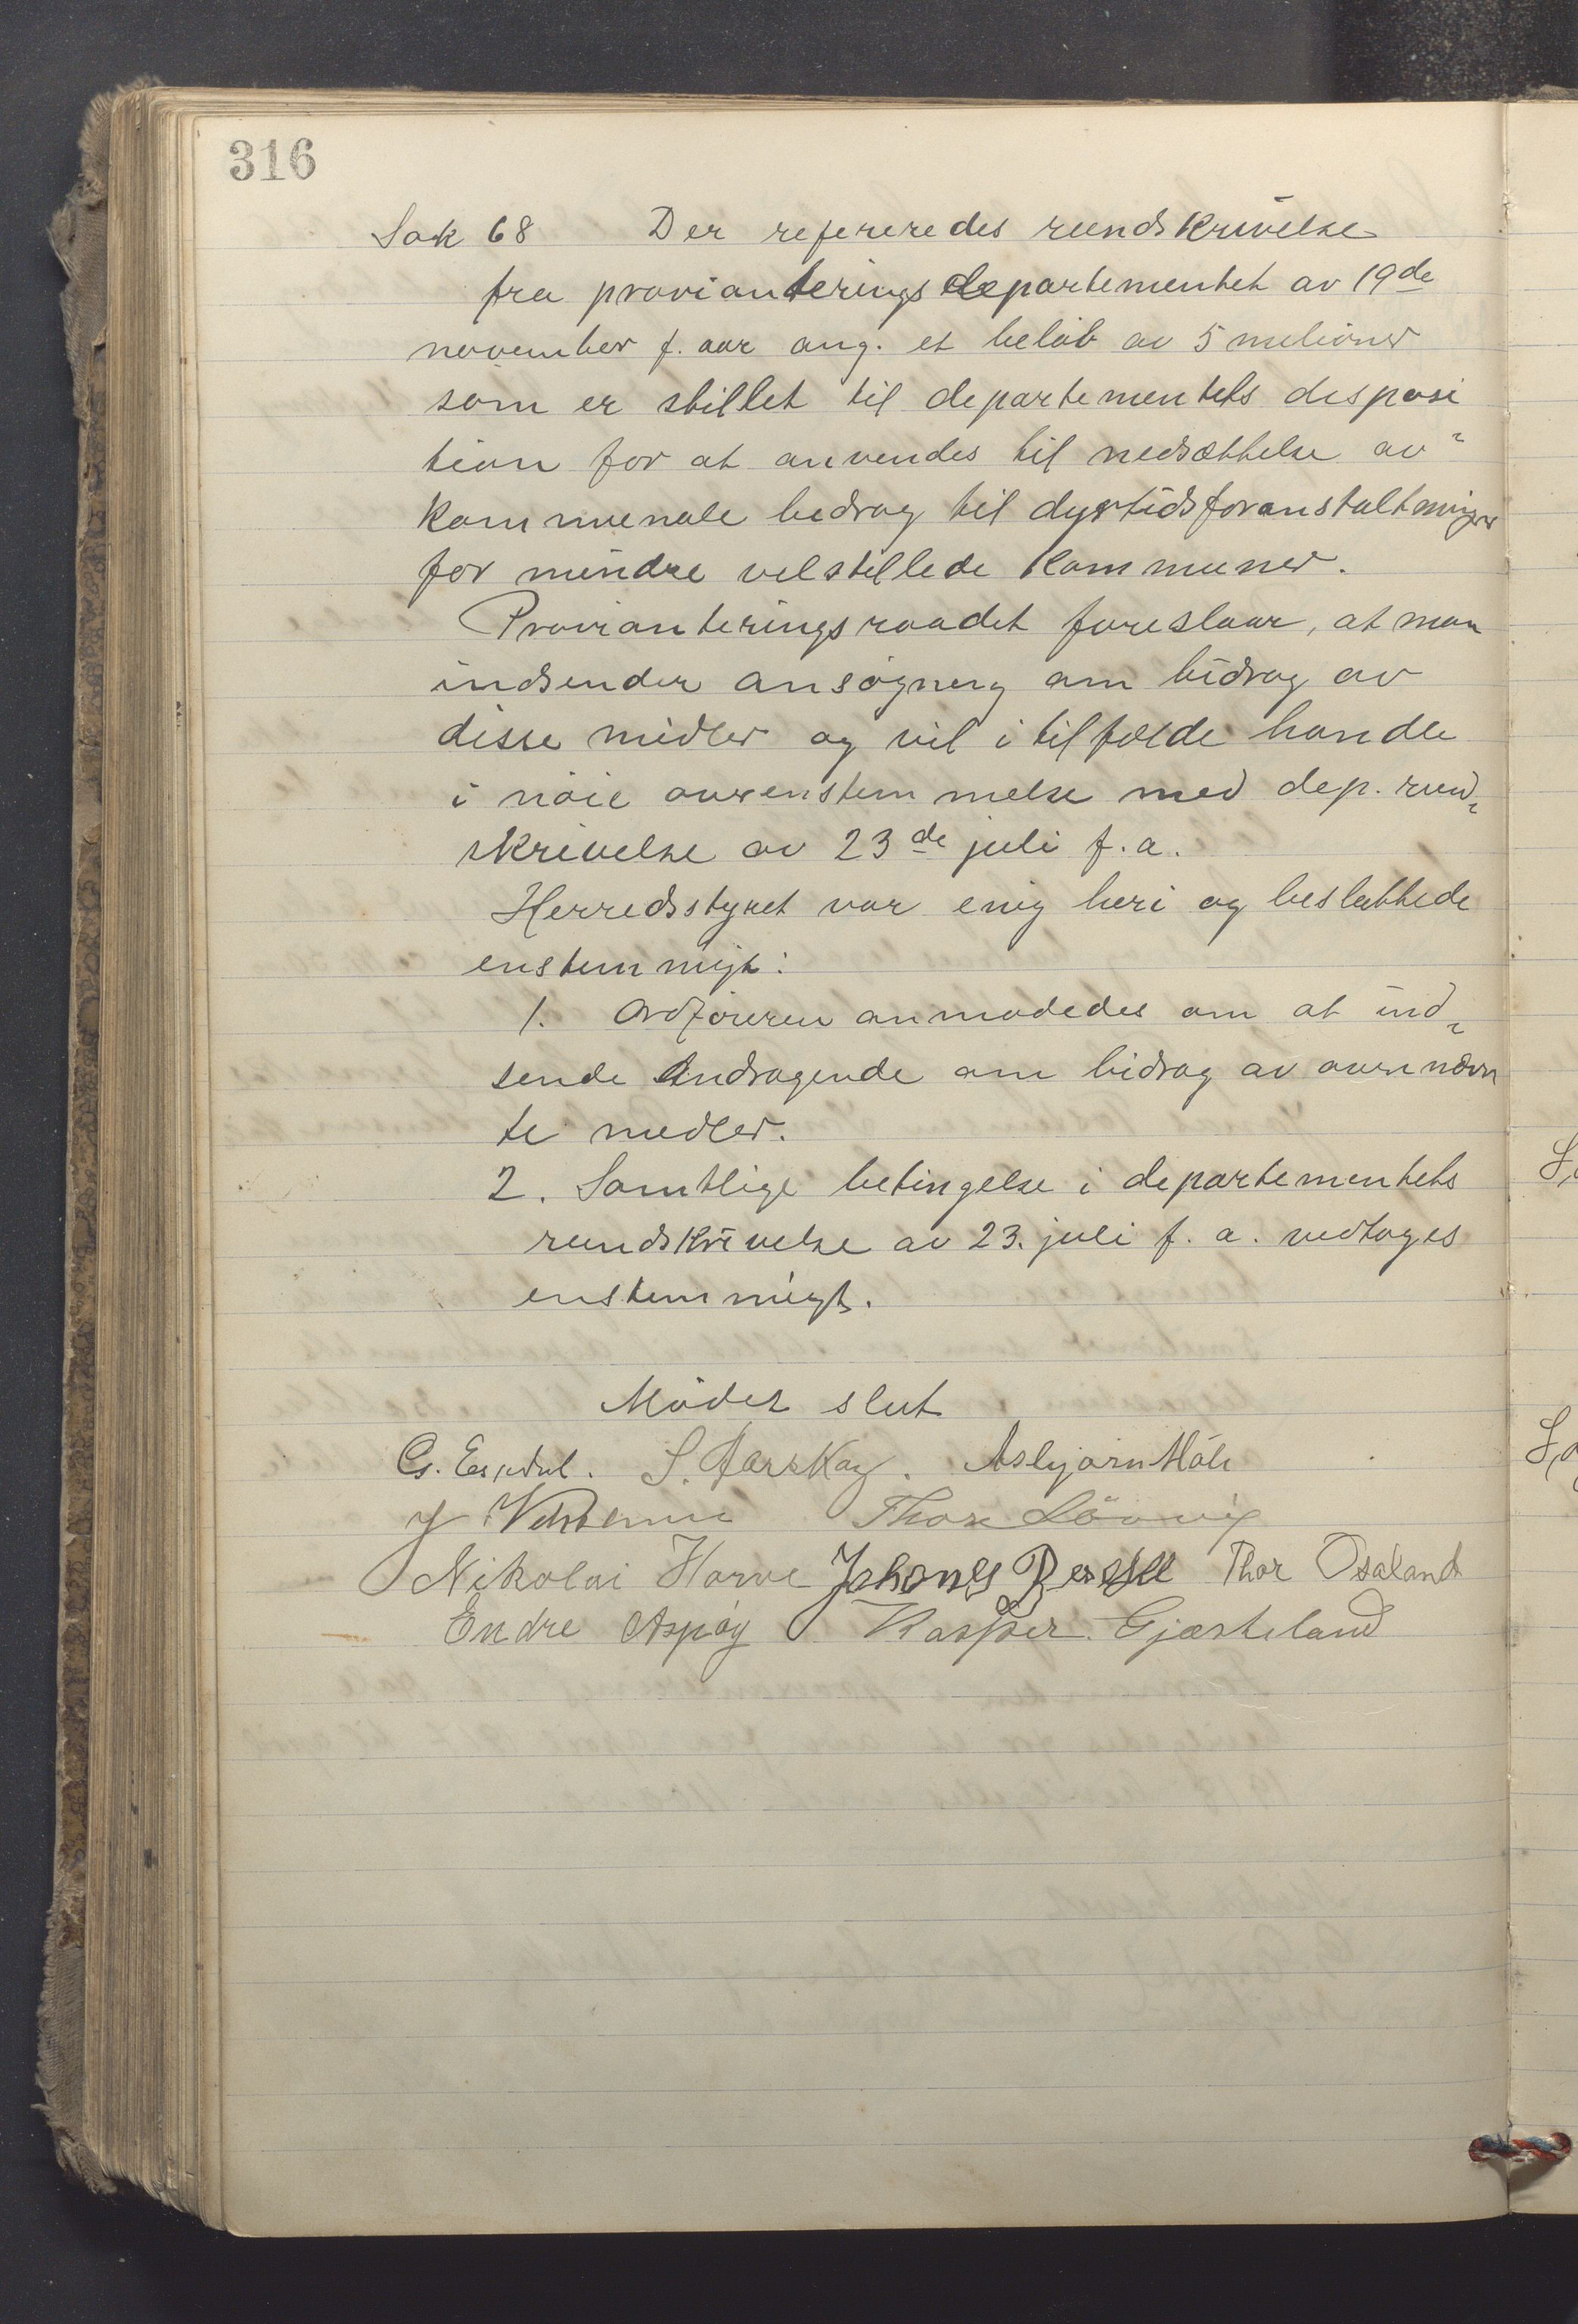 316
Sak 68 Der refereredes rundskrivelse
fra provianteringsdepartementet av 19de
november f. aar ang. et beløb av 5 melioner
som er stillet til departementets disposi
tion for at anvendes til nedsættelse av
kommunale bedrag til dyrtidsforanstaltninger
for mindre velstillede kommuner.
Provianteringsraadet foreslaar, at man
indsender ansøgning om bidrag av
disse midler og vil i tilfælde handle
i nøie overenstemmelse med dep. rund-
skrivelse av 23de juli f. a.
Herredsstyret var enig heri og besluttede
enstemmigt:
1. Ordføreren anmodedes om at ind-
sende andragende om bidrag av ovennævn
te midler.
2. Samtlige betingelse i departementets
rundskrivelse av 23. juli f. a. vedtoges
enstemmigt.
Mødet slut
G. Eskdal. S. Aarskog. Asbjørn Høle
J Thore Løvvig
Nikolai Horve Johannes Thor Osaland
Endre Aspøy Kasper Gjæsteland